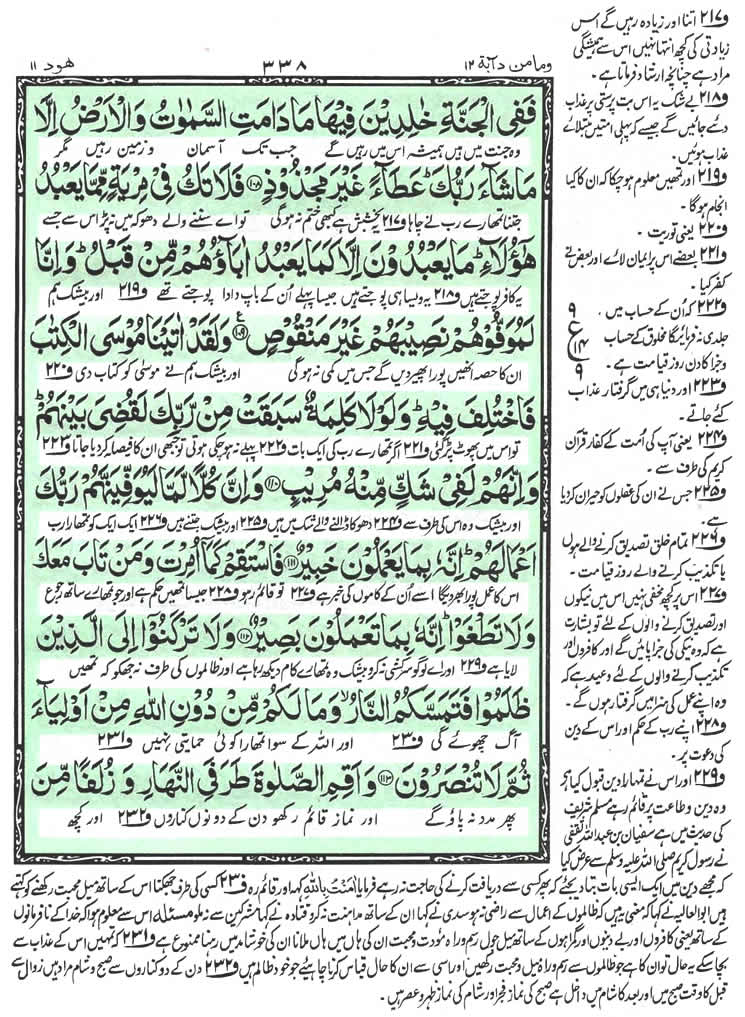 ومامن دآبة ١٢
٣٣٨
هود ١١
فَفِي الْجَنَّةِ خٰلِدِيْنَ فِيْهَا مَا دَامَتِ السَّمٰوٰتُ وَالْاَرْضُ اِلَّا
وہ جنت میں ہیں ہمیشہ اس میں رہیں گے جب تک آسمان و زمین رہیں مگر
مَا شَآءَ رَبُّكَ ؕ عَطَآءً غَيْرَ مَجْذُوْذٍ ﴿۱۰۸﴾ فَلَا تَكُ فِيْ مِرْيَةٍ مِّمَّا يَعْبُدُ
جتنا تمہارے رب نے چاہا ف٢١٧ یہ بخشش ہے کبھی ختم نہ ہوگی تو اے سننے والے دھوکہ میں نہ پڑ اس سے جسے
هٰۤؤُلَآءِ ؕ مَا يَعْبُدُوْنَ اِلَّا كَمَا يَعْبُدُ اٰبَآؤُهُمْ مِّنْ قَبْلُ ؕ وَاِنَّا
یہ کافر پوجتے ہیں ف٢١٨ یہ ویسا ہی پوجتے ہیں جیسا پہلے ان کے باپ دادا پوجتے تھے ف٢١٩ اور بیشک ہم
لَمُوَفُّوْهُمْ نَصِيْبَهُمْ غَيْرَ مَنْقُوْصٍ ﴿۱۰۹﴾ وَلَقَدْ اٰتَيْنَا مُوْسَى الْكِتٰبَ
ان کا حصہ انھیں پورا پھیر دیں گے جس میں کمی نہ ہوگی اور بیشک ہم نے موسیٰ کو کتاب دی ف٢٢٠
فَاخْتُلِفَ فِيْهِ ؕ وَلَوْلَا كَلِمَةٌ سَبَقَتْ مِنْ رَّبِّكَ لَقُضِيَ بَيْنَهُمْ ؕ
تو اس میں پھوٹ پڑگئی ف٢٢١ اگر تمہارے رب کی ایک بات ف٢٢٢ پہلے نہ ہو چکی ہوتی تو جبھی ان کا فیصلہ کردیا جاتا ف٢٢٣
وَاِنَّهُمْ لَفِيْ شَكٍّ مِّنْهُ مُرِيْبٍ ﴿۱۱۰﴾ وَاِنَّ كُلًّا لَّمَّا لَيُوَفِّيَنَّهُمْ رَبُّكَ
اور بیشک وہ اس کی طرف سے ف٢٢٤ دھوکا ڈالنے والے شک میں ہیں ف٢٢٥ اور بیشک جتنے ہیں ف٢٢٦ ایک ایک کو تمہارا رب
اَعْمَالَهُمْ ؕ اِنَّهٗ بِمَا يَعْمَلُوْنَ خَبِيْرٌ ﴿۱۱۱﴾ فَاسْتَقِمْ كَمَاۤ اُمِرْتَ وَمَنْ تَابَ مَعَكَ
اس کا عمل پورا بھر دیگا اسے ان کے کاموں کی خبر ہے ف٢٢٧ تو قائم رہو ف٢٢٨ جیسا تمھیں حکم ہے اور جو تمہارے ساتھ رجوع
وَلَا تَطْغَوْا ؕ اِنَّهٗ بِمَا تَعْمَلُوْنَ بَصِيْرٌ ﴿۱۱۲﴾ وَلَا تَرْكَنُوْۤا اِلَى الَّذِيْنَ
لایا ہے ف٢٢٩ اور اے لوگو سرکشی نہ کرو بیشک وہ تمہارے کام دیکھ رہا ہے اور ظالموں کی طرف نہ جھکو کہ تمھیں
ظَلَمُوْا فَتَمَسَّكُمُ النَّارُ ۙ وَمَا لَكُمْ مِّنْ دُوْنِ اللّٰهِ مِنْ اَوْلِيَآءَ
آگ چھوئے گی ف٢٣٠ اور اللہ کے سوا تمھارا کوئی حمایتی نہیں ف٢٣١
ثُمَّ لَا تُنْصَرُوْنَ ﴿۱۱۳﴾ وَاَقِمِ الصَّلٰوةَ طَرَفَيِ النَّهَارِ وَزُلَفًا مِّنَ
پھر مدد نہ پاؤ گے اور نماز قائم رکھو دن کے دونوں کناروں ف٢٣٢ اور کچھ
ف٢١٧ اتنا اور زیادہ رہیں گے اس
زیادتی کی کچھ انتہا نہیں اس سے ہمیشگی
مراد ہے چنانچہ ارشاد فرماتا ہے ۔
ف٢١٨ بے شک یہ اس بت پرستی پر عذاب
دئے جائیں گے جیسے کہ پہلی امتیں مبتلائے
عذاب ہوئیں ۔
ف٢١٩ اور تمھیں معلوم ہو چکا کہ ان کا کیا
انجام ہوگا ۔
ف٢٢٠ یعنی توریت ۔
ف٢٢١ بعضے اس پر ایمان لائے اور بعض نے
کفر کیا ۔
ف٢٢٢ کہ ان کے حساب میں
جلدی نہ فرمائیگا مخلوق کے حساب
و جزا کا دن روز قیامت ہے ۔
٩
ع
١٤
٩
ف٢٢٣ اور دنیا ہی میں گرفتار عذاب
کئے جاتے ۔
ف٢٢٤ یعنی آپ کی امت کے کفار قرآن
کریم کی طرف سے ۔
ف٢٢٥ جس نے ان کی عقلوں کو حیران کردیا
ہے ۔
ف٢٢٦ تمام خلق تصدیق کرنے والے ہوں
یا تکذیب کرنے والے روز قیامت ۔
ف٢٢٧ اس پر کچھ مخفی نہیں اس میں نیکوں
اور تصدیق کرنے والوں کے لئے تو بشارت
ہے کہ وہ نیکی کی جزا پائیں گے اور کافروں اور
تکذیب کرنے والوں کے لئے وعید ہے کہ
وہ اپنے عمل کی سزا میں گرفتار ہوں گے ۔
ف٢٢٨ اپنے رب کے حکم اور اس کے دین
کی دعوت پر ۔
ف٢٢٩ اور اس نے تمہارا دین قبول کیا ہے
وہ دین و طاعت پر قائم رہے مسلم شریف
کی حدیث میں ہے سفیان بن عبداللہ ثقفی
نے رسول کریم صلی اللہ علیہ وسلم سے عرض کیا
کہ مجھے دین میں ایک ایسی بات بتا دیجئے کہ پھر کسی سے دریافت کرنے کی حاجت نہ رہے فرمایا اٰمَنْتُ بِاللّٰهِ کہہ اور قائم رہ ف٢٣٠ کسی کی طرف جھکنا اس کے ساتھ میل محبت رکھنے کو کہتے
ہیں ابوالعالیہ نے کہا کہ معنی یہ ہیں کہ ظالموں کے اعمال سے راضی نہ ہو سدی نے کہا ان کے ساتھ مداہنت نہ کرو قتادہ نے کہا مشرکین سے نہ ملو مسئلہ اس سے معلوم ہوا کہ خدا کے نافرمانوں
کے ساتھ یعنی کافروں اور بے دینوں اور گمراہوں کے ساتھ میل جول رسم و راہ مودت و محبت ان کی ہاں میں ہاں ملانا ان کی خوشامد میں رہنا ممنوع ہے ف٢٣١ کہ تمھیں اس کے عذاب سے
بچا سکے یہ حال تو ان کا ہے جو ظالموں سے رسم و راہ میل و محبت رکھیں اور اسی سے ان کا حال قیاس کرنا چاہیئے جو خود ظالم ہیں ف٢٣٢ دن کے دو کناروں سے صبح و شام مراد ہیں زوال سے
قبل کا وقت صبح میں اور بعد کا شام میں داخل ہے صبح کی نماز فجر اور شام کی نماز ظہر و عصر ہیں ۔